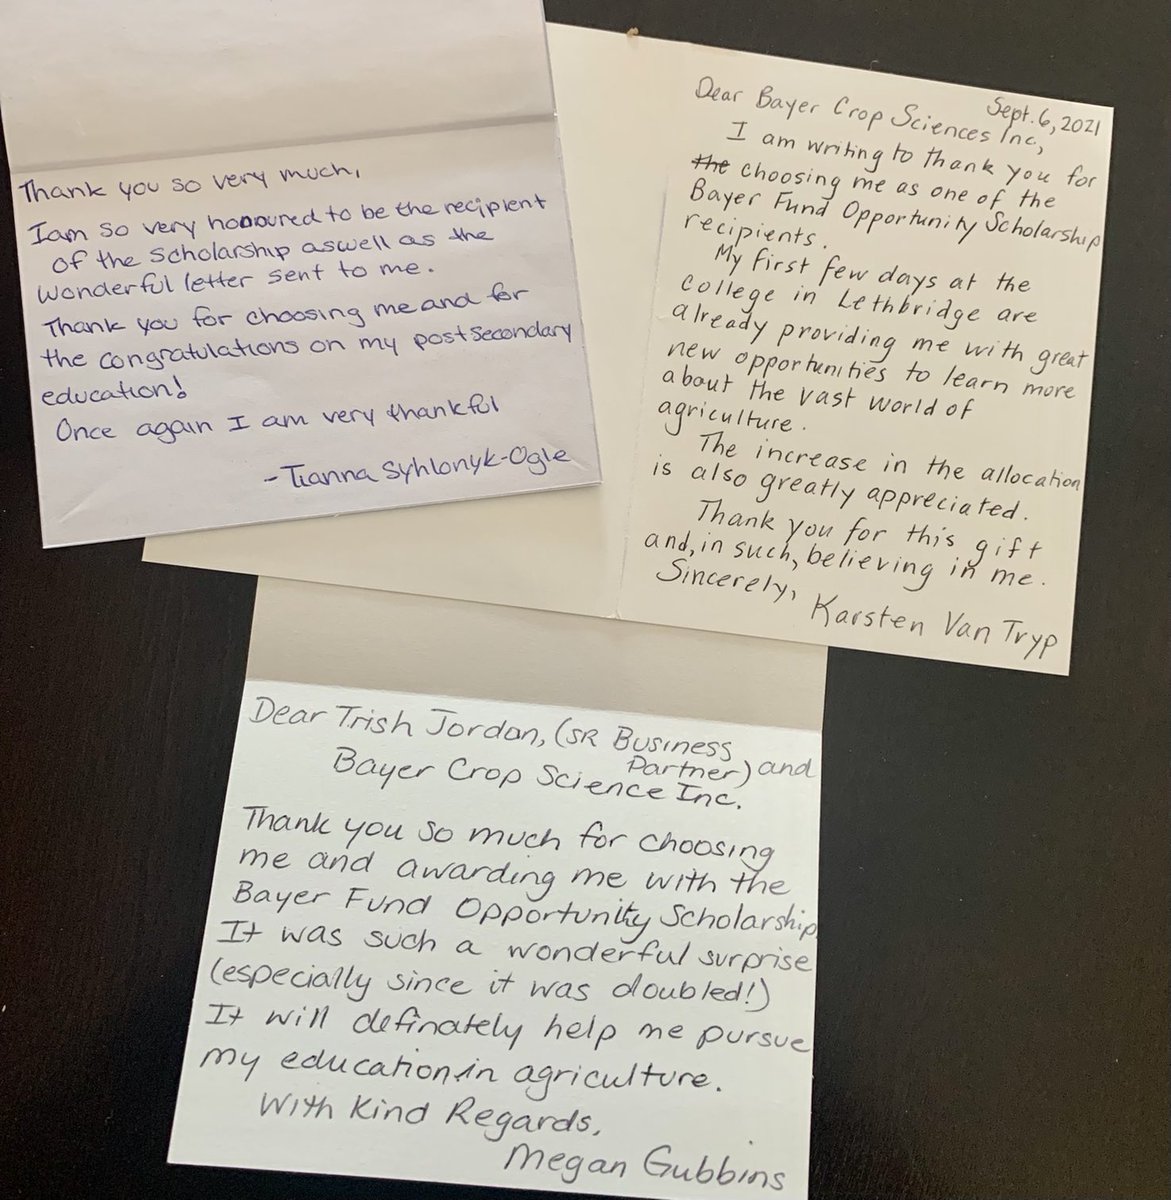 Thank you so very much,
I am so very honoured to be the recipient
of the scholarship aswell as the
wonderful letter sent to me.
Thank you for choosing me and for
the congratulations on my post secondary
education!
Once again I am very thankful
- Tianna Syhlonyk-Ogle
Sept. 6, 2021
Dear Bayer Crop Sciences Inc,
I am writing to thank you for
the choosing me as one of the
Bayer Fund Opportunity Scholarship
recipients.
My first few days at the
college in Lethbridge are
already providing me with great
new opportunities to learn more
about the vast world of
agriculture.
The increase in the allocation
is also greatly appreciated.
Thank you for this gift
and, in such, believing in me.
Sincerely,
Karsten Van Tryp
Dear Trish Jordan, (SR Business
Partner) and
Bayer Crop Science Inc.
Thank you so much for choosing
me and awarding me with the
Bayer Fund Opportunity Scholarship
It was such a wonderful surprise
(especially since it was doubled!)
It will definately help me pursue
my education in agriculture.
With Kind Regards,
Megan Gubbins